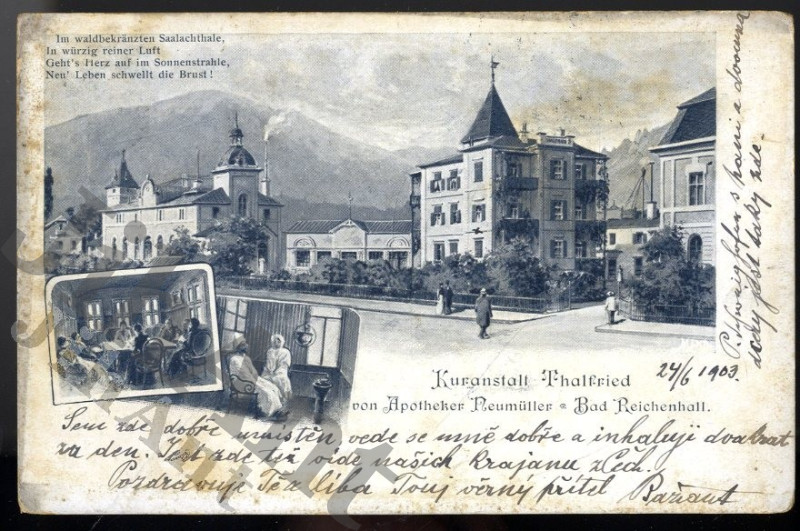 Im waldbekränzten Saalachthale,
In würzig reiner Luft
Geht's Herz auf im Sonnenstrahle,
Neu' Leben schwellt die Brust!
Kuranstalt Thalfried
von Apotheker Neumüller Bad Reichenhall.
24/6 1903.
Sem zde dobře umístěn, vede se mně dobře a inhaluji dvakrat
za den. Jest zde též vide našich krajanu z Čech.
Pozdravuje Těz líba Tvuj věrný přítel
s paní a
jest taky zde.